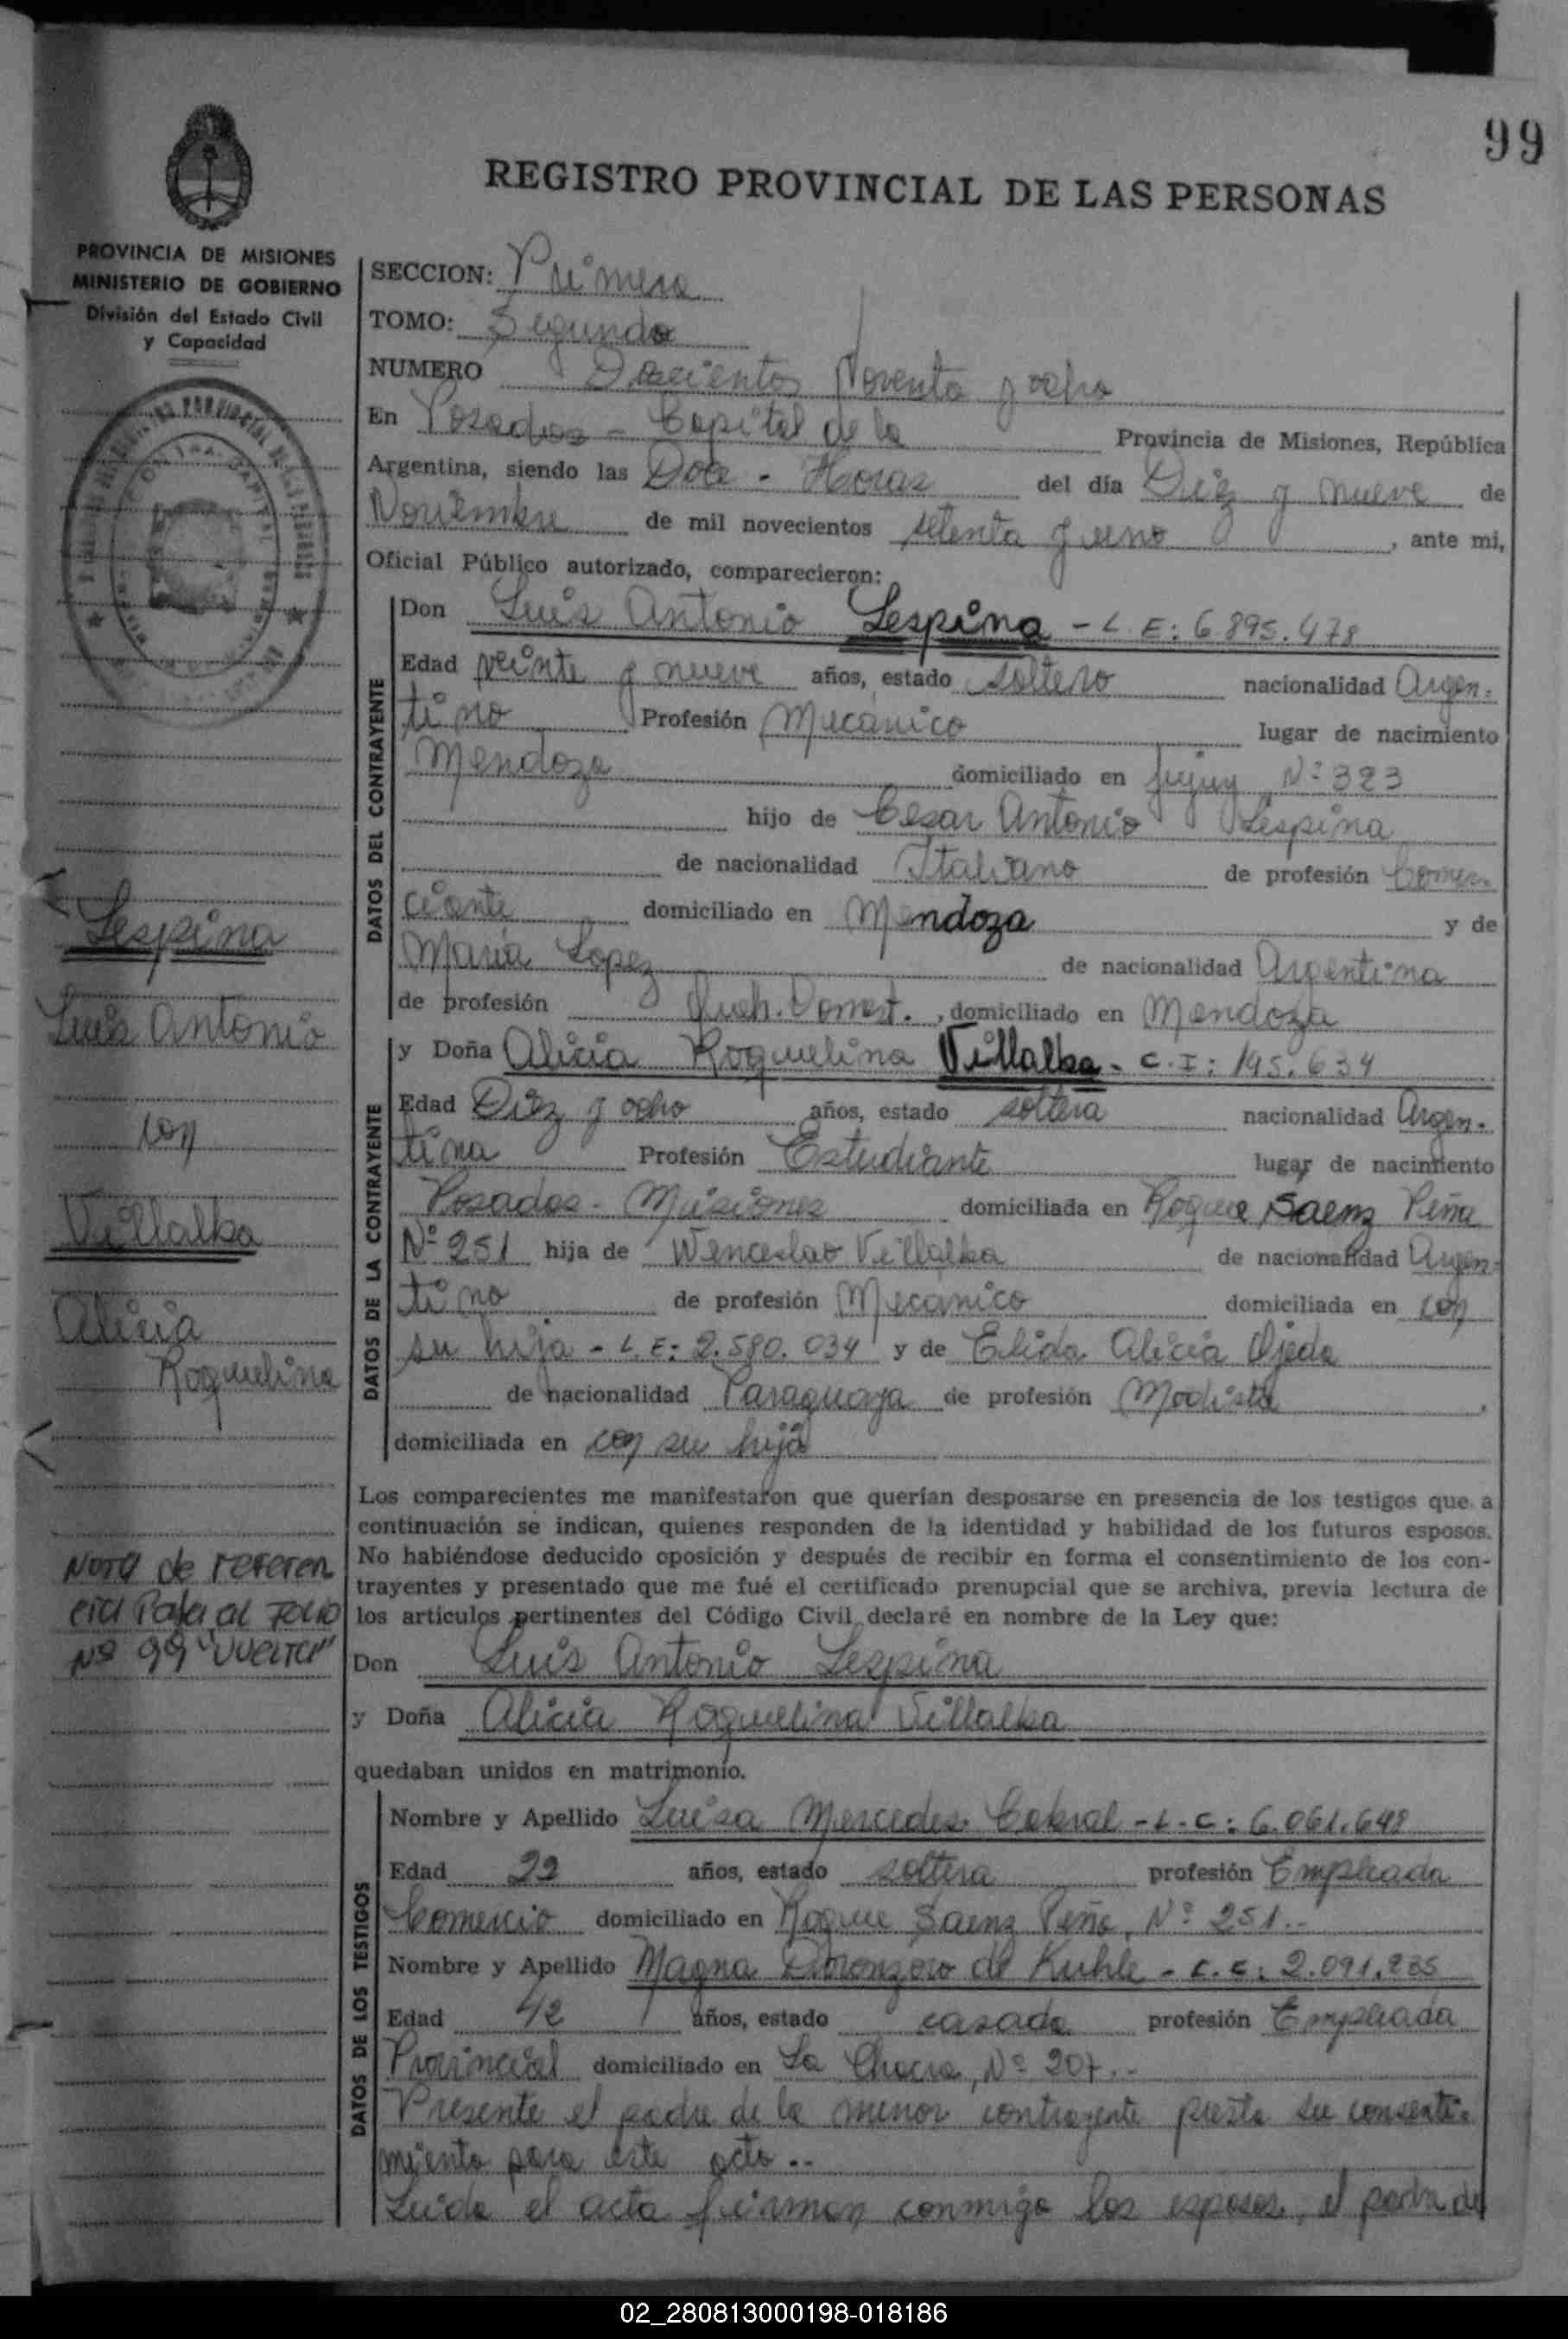 99
REGISTRO PROVINCIAL DE LAS PERSONAS
PROVINCIA DE MISIONES
MINISTERIO DE GOBIERNO
División del Estado Civil
y Capacidad
SECCION: Primera
TOMO: Segundo
NUMERO Doscientos Noventa y ocho
En Posadas - Capital de la Provincia de Misiones, República
Argentina, siendo las Doce - Horas del día Diez y nueve de
Noviembre de mil novecientos setenta y uno, ante mi,
Oficial Público autorizado, comparecieron:
DATOS DEL CONTRAYENTE
Don Luis Antonio Lespina - L.E: 6.895.478
Edad veinte y nueve años, estado soltero nacionalidad Argen-
tino Profesión Mecánico lugar de nacimiento
Mendoza domiciliado en Jujuy Nº 323
hijo de Cesar Antonio Lespina
de nacionalidad Italiano de profesión Comer-
ciante domiciliado en Mendoza y de
María Lopez de nacionalidad Argentina
de profesión Queh. Domest., domiciliado en Mendoza
DATOS DE LA CONTRAYENTE
y Doña Alicia Roquelina Villalba - C.I: 195.634
Edad Diez y ocho años, estado soltera nacionalidad Argen-
tina Profesión Estudiante lugar de nacimiento
Posadas - Misiones domiciliada en Roque Saenz Peña
Nº 251 hija de Wenceslao Villalba de nacionalidad Argen-
tino de profesión Mecánico domiciliada en con
su hija - L.E: 2.580.034 y de Elida Alicia Ojeda
de nacionalidad Paraguaya de profesión Modista,
domiciliada en con su hija
Los comparecientes me manifestaron que querían desposarse en presencia de los testigos que a
continuación se indican, quienes responden de la identidad y habilidad de los futuros esposos.
No habiéndose deducido oposición y después de recibir en forma el consentimiento de los con-
trayentes y presentado que me fué el certificado prenupcial que se archiva, previa lectura de
los artículos pertinentes del Código Civil declaré en nombre de la Ley que:
Don Luis Antonio Lespina
y Doña Alicia Roquelina Villalba
quedaban unidos en matrimonio.
DATOS DE LOS TESTIGOS
Nombre y Apellido Luisa Mercedes Cabral - L.C: 6.061.648
Edad 22 años, estado soltera profesión Empleada
Comercio domiciliado en Roque Saenz Peña, Nº 251..
Nombre y Apellido Magna de Kuhle - L.C: 2.091.235
Edad 42 años, estado casada profesión Empleada
Provincial domiciliado en La Chacra, Nº 207..
Presente el padre de la menor contrayente presta su consenti-
miento para este acto..
Leida el acta firman conmigo los esposos, el padre de
Lespina
Luis Antonio
con
Villalba
Alicia
Roquelina
Nota de referen
cia Pasa al Folio
Nº 99 "Vuelta"
02_280813000198-018186